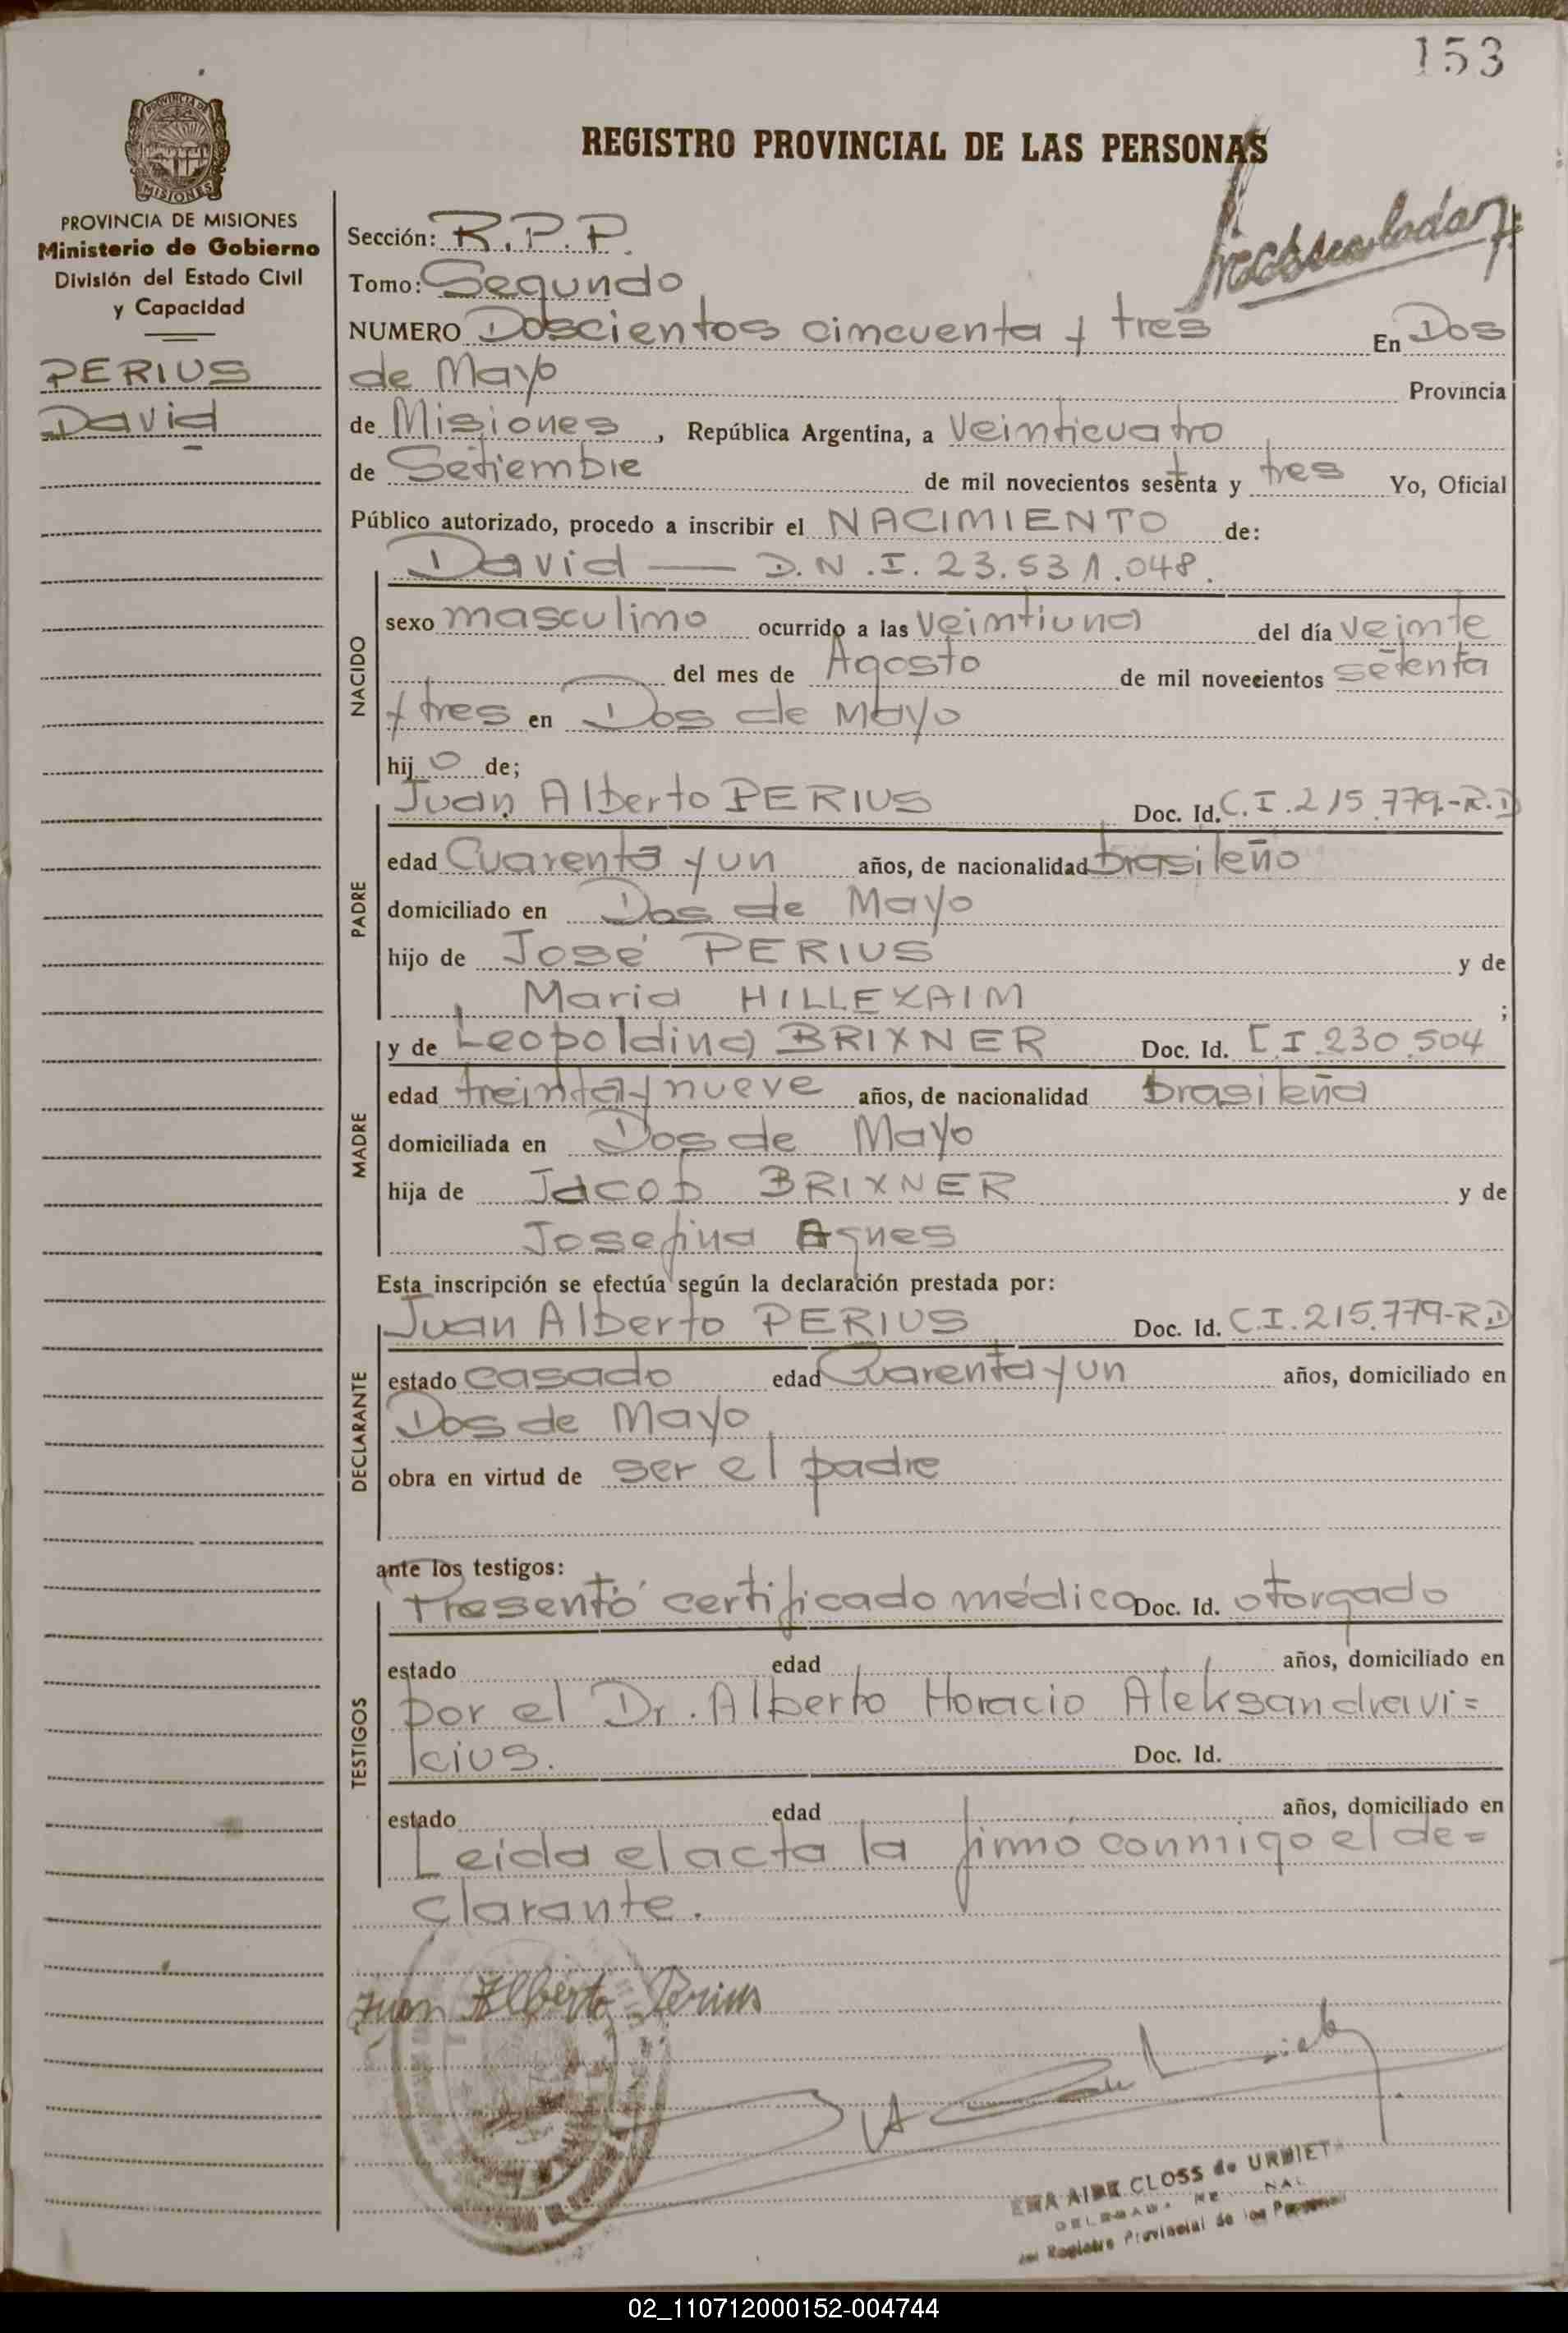 153
REGISTRO PROVINCIAL DE LAS PERSONAS
PROVINCIA DE
MISIONES
PROVINCIA DE MISIONES
Ministerio de Gobierno
División del Estado Civil
y Capacidad
PERIUS
David
Sección: R.P.P.
Tomo: Segundo
NUMERO Doscientos cincuenta y tres En Dos
de Mayo Provincia
de Misiones, República Argentina, a Veinticuatro
de Setiembre de mil novecientos setenta y tres Yo, Oficial
Público autorizado, procedo a inscribir el NACIMIENTO de:
David — D.N.I. 23.531.048.
NACIDO
sexo masculino ocurrido a las Veintiuna del día Veinte
del mes de Agosto de mil novecientos setenta
y tres en Dos de Mayo
hij o de;
Juan Alberto PERIUS Doc. Id. C.I. 215.779.-R.D
PADRE
edad Cuarenta y un años, de nacionalidad brasileño
domiciliado en Dos de Mayo
hijo de José PERIUS y de
Maria HILLEXAIM ;
y de Leopoldina BRIXNER Doc. Id. C.I. 230.504
MADRE
edad treinta y nueve años, de nacionalidad brasileña
domiciliada en Dos de Mayo
hija de Jacob BRIXNER y de
Josefina Agnes
Esta inscripción se efectúa según la declaración prestada por:
Juan Alberto PERIUS Doc. Id. C.I. 215.779-R.D
DECLARANTE
estado casado edad Cuarenta y un años, domiciliado en
Dos de Mayo
obra en virtud de ser el padre
ante los testigos:
Presentó certificado médico Doc. Id. otorgado
TESTIGOS
estado edad años, domiciliado en
por el Dr. Alberto Horacio Aleksandravi=
cius. Doc. Id.
estado edad años, domiciliado en
Leida el acta la firmó conmigo el de=
clarante.
Juan Alberto Perius
AIDE CLOSS de URBIETA
Registro Provincial de las Personas
02_110712000152-004744